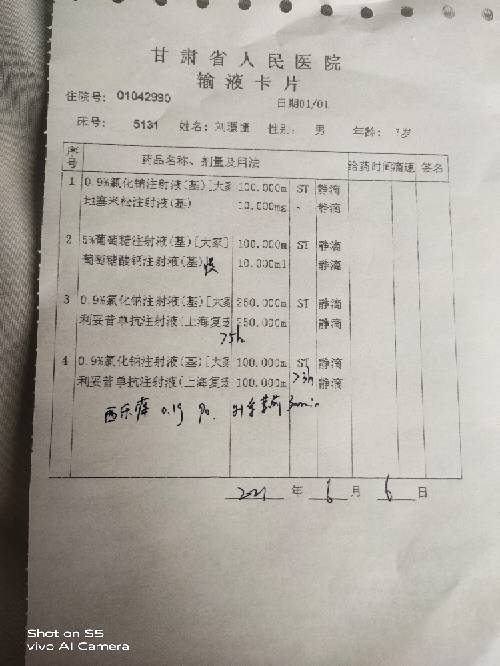 甘肃省人民医院
输液卡片
住院号: 01042990 日期01/01
床号: 5131 姓名: 刘 性别: 男 年龄: 7岁
序号 药品名称、剂量及用法 给药时间 滴速 签名
1 0.9%氯化钠注射液(基)[大冢 100.000m ST 静滴
地塞米松注射液(基) 10.000mg 静滴
2 5%葡萄糖注射液(基)[大冢] 100.000m ST 静滴
葡萄糖酸钙注射液(基) 慢 10.000ml 静滴
3 0.9%氯化钠注射液(基)[大冢 250.000m ST 静滴
利妥昔单抗注射液(上海复宏 250.000m 静滴
>5h
4 0.9%氯化钠注射液(基)[大冢 100.000m ST 静滴
利妥昔单抗注射液(上海复宏 100.000m >3h 静滴
西乐葆 0.1g po. 30min
2021 年 6 月 6 日
Shot on S5
vivo AI Camera